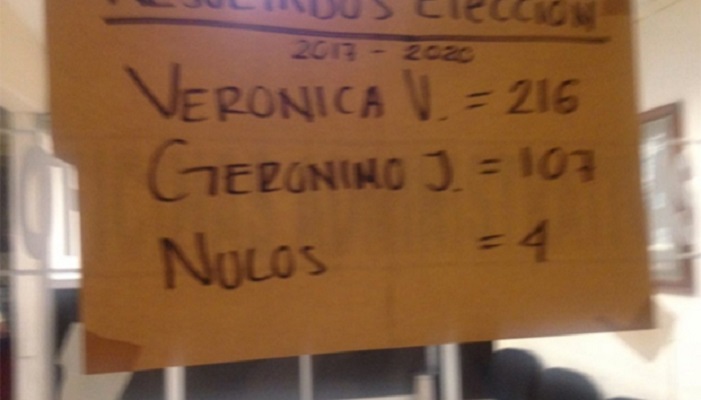 RESULTADOS ELECCIÓN
2017 - 2020
VERONICA V. = 216
GERONIMO J. = 107
NULOS = 4